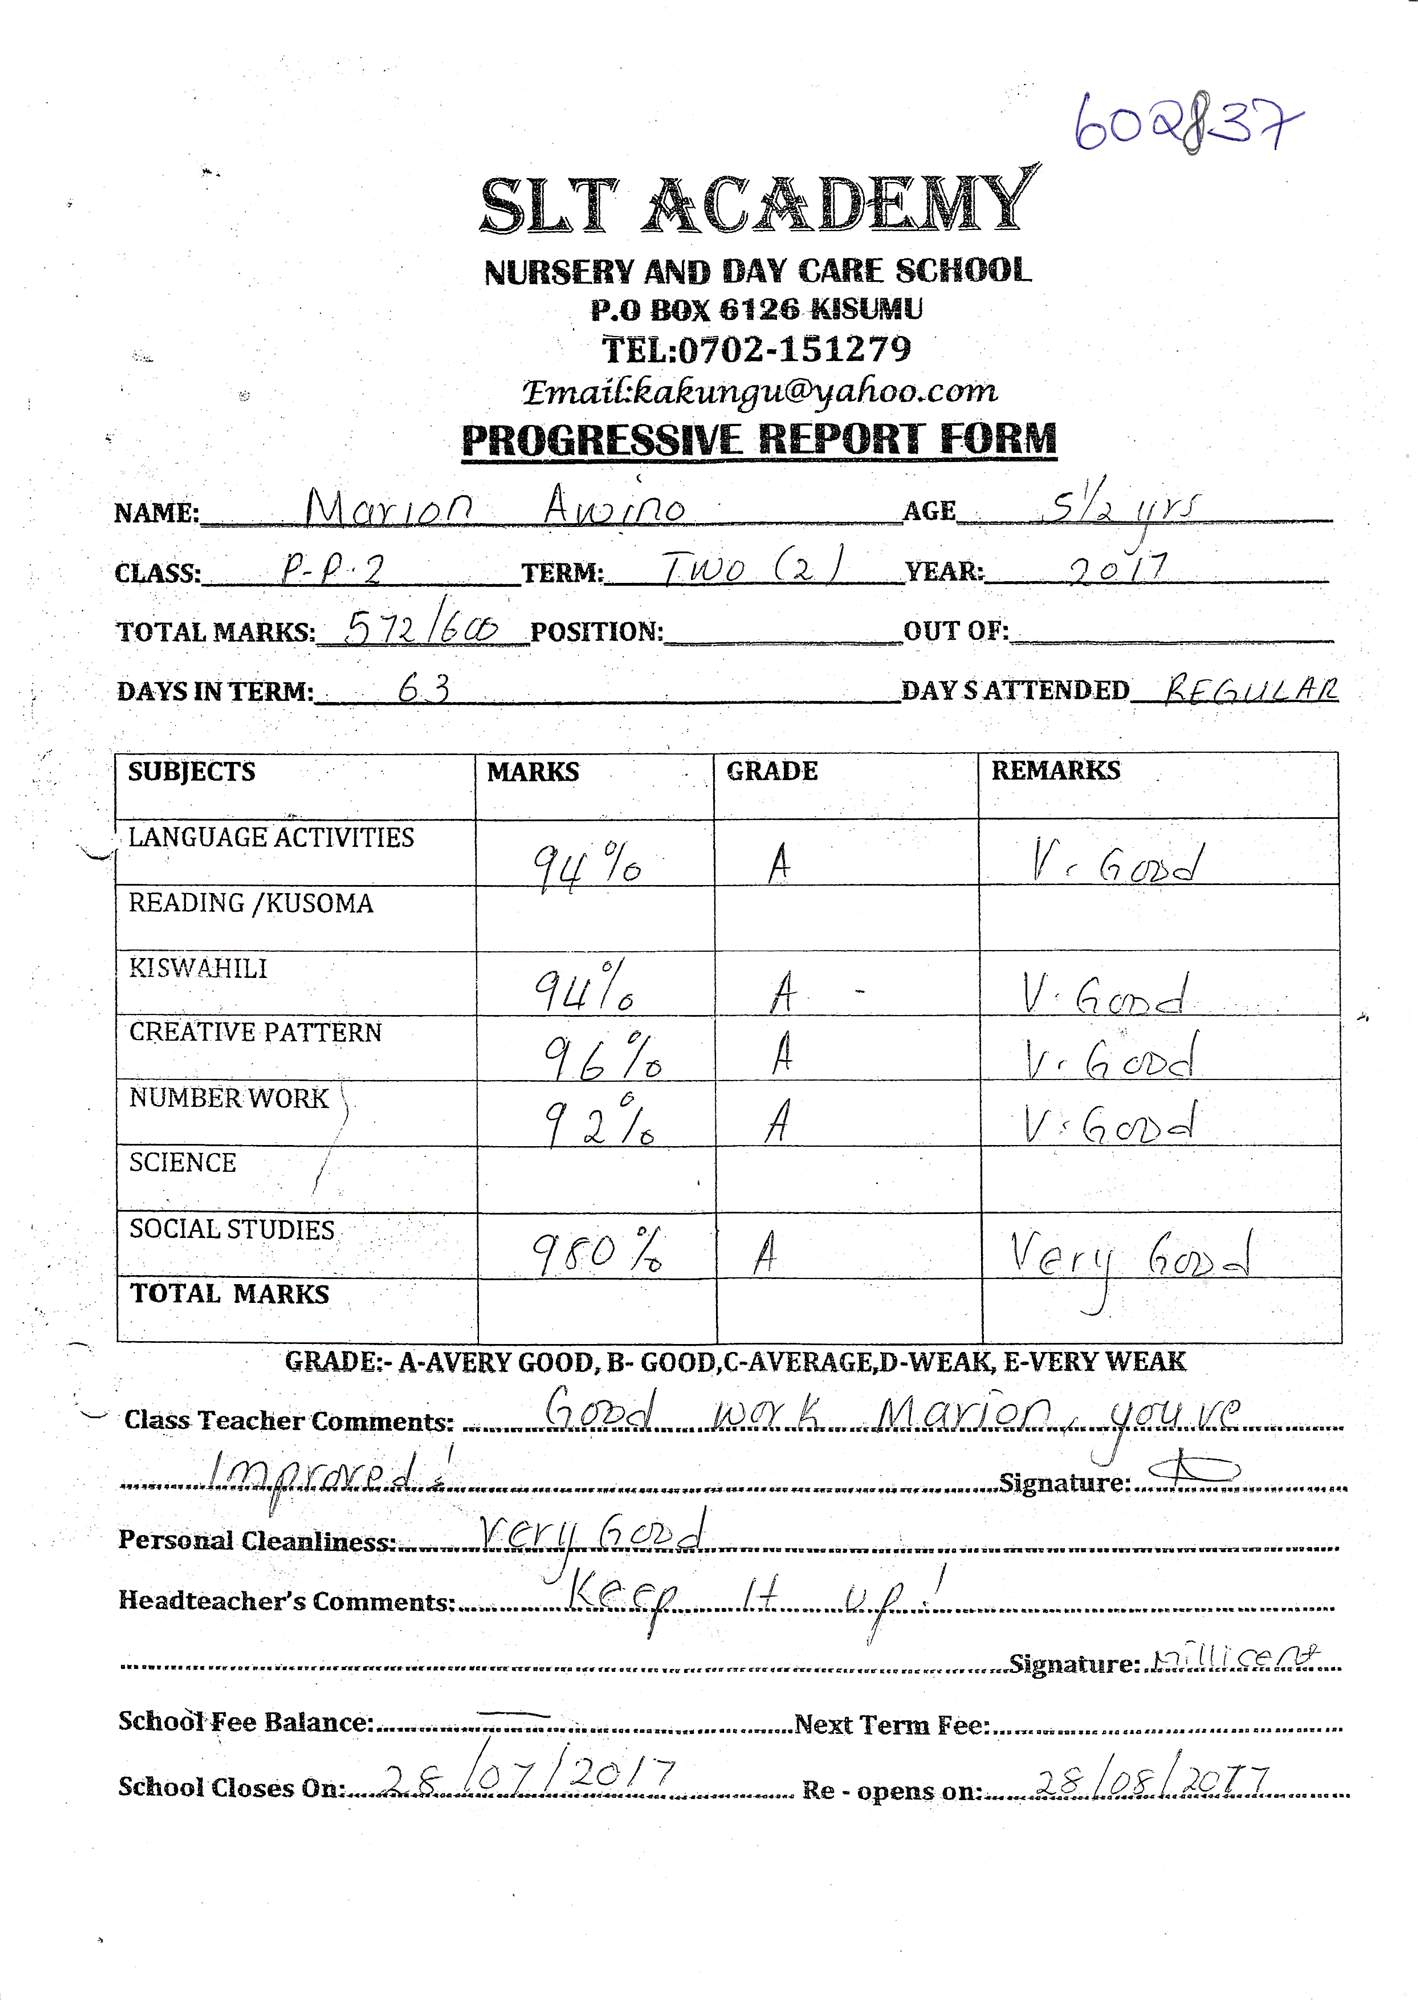 602837
SLT ACADEMY
NURSERY AND DAY CARE SCHOOL
P.O BOX 6126 KISUMU
TEL:0702-151279
Email:kakungu@yahoo.com
PROGRESSIVE REPORT FORM
NAME: Marion Awino AGE 5 1/2 yrs
CLASS: P-P.2 TERM: TWO (2) YEAR: 2017
TOTAL MARKS: 572/600 POSITION: OUT OF:
DAYS IN TERM: 63 DAY S ATTENDED REGULAR
SUBJECTS MARKS GRADE REMARKS
LANGUAGE ACTIVITIES 94% A V. Good
READING /KUSOMA
KISWAHILI 94% A - V. Good
CREATIVE PATTERN 96% A V. Good
NUMBER WORK 92% A V. Good
SCIENCE
SOCIAL STUDIES 980% A Very Good
TOTAL MARKS
GRADE:- A-AVERY GOOD, B- GOOD,C-AVERAGE,D-WEAK, E-VERY WEAK
Class Teacher Comments: Good work Marion, you've
Improved! Signature:
Personal Cleanliness: Very Good
Headteacher's Comments: Keep It up!
Signature: Millicent
School Fee Balance: — Next Term Fee:
School Closes On: 28/07/2017 Re - opens on: 28/08/2017